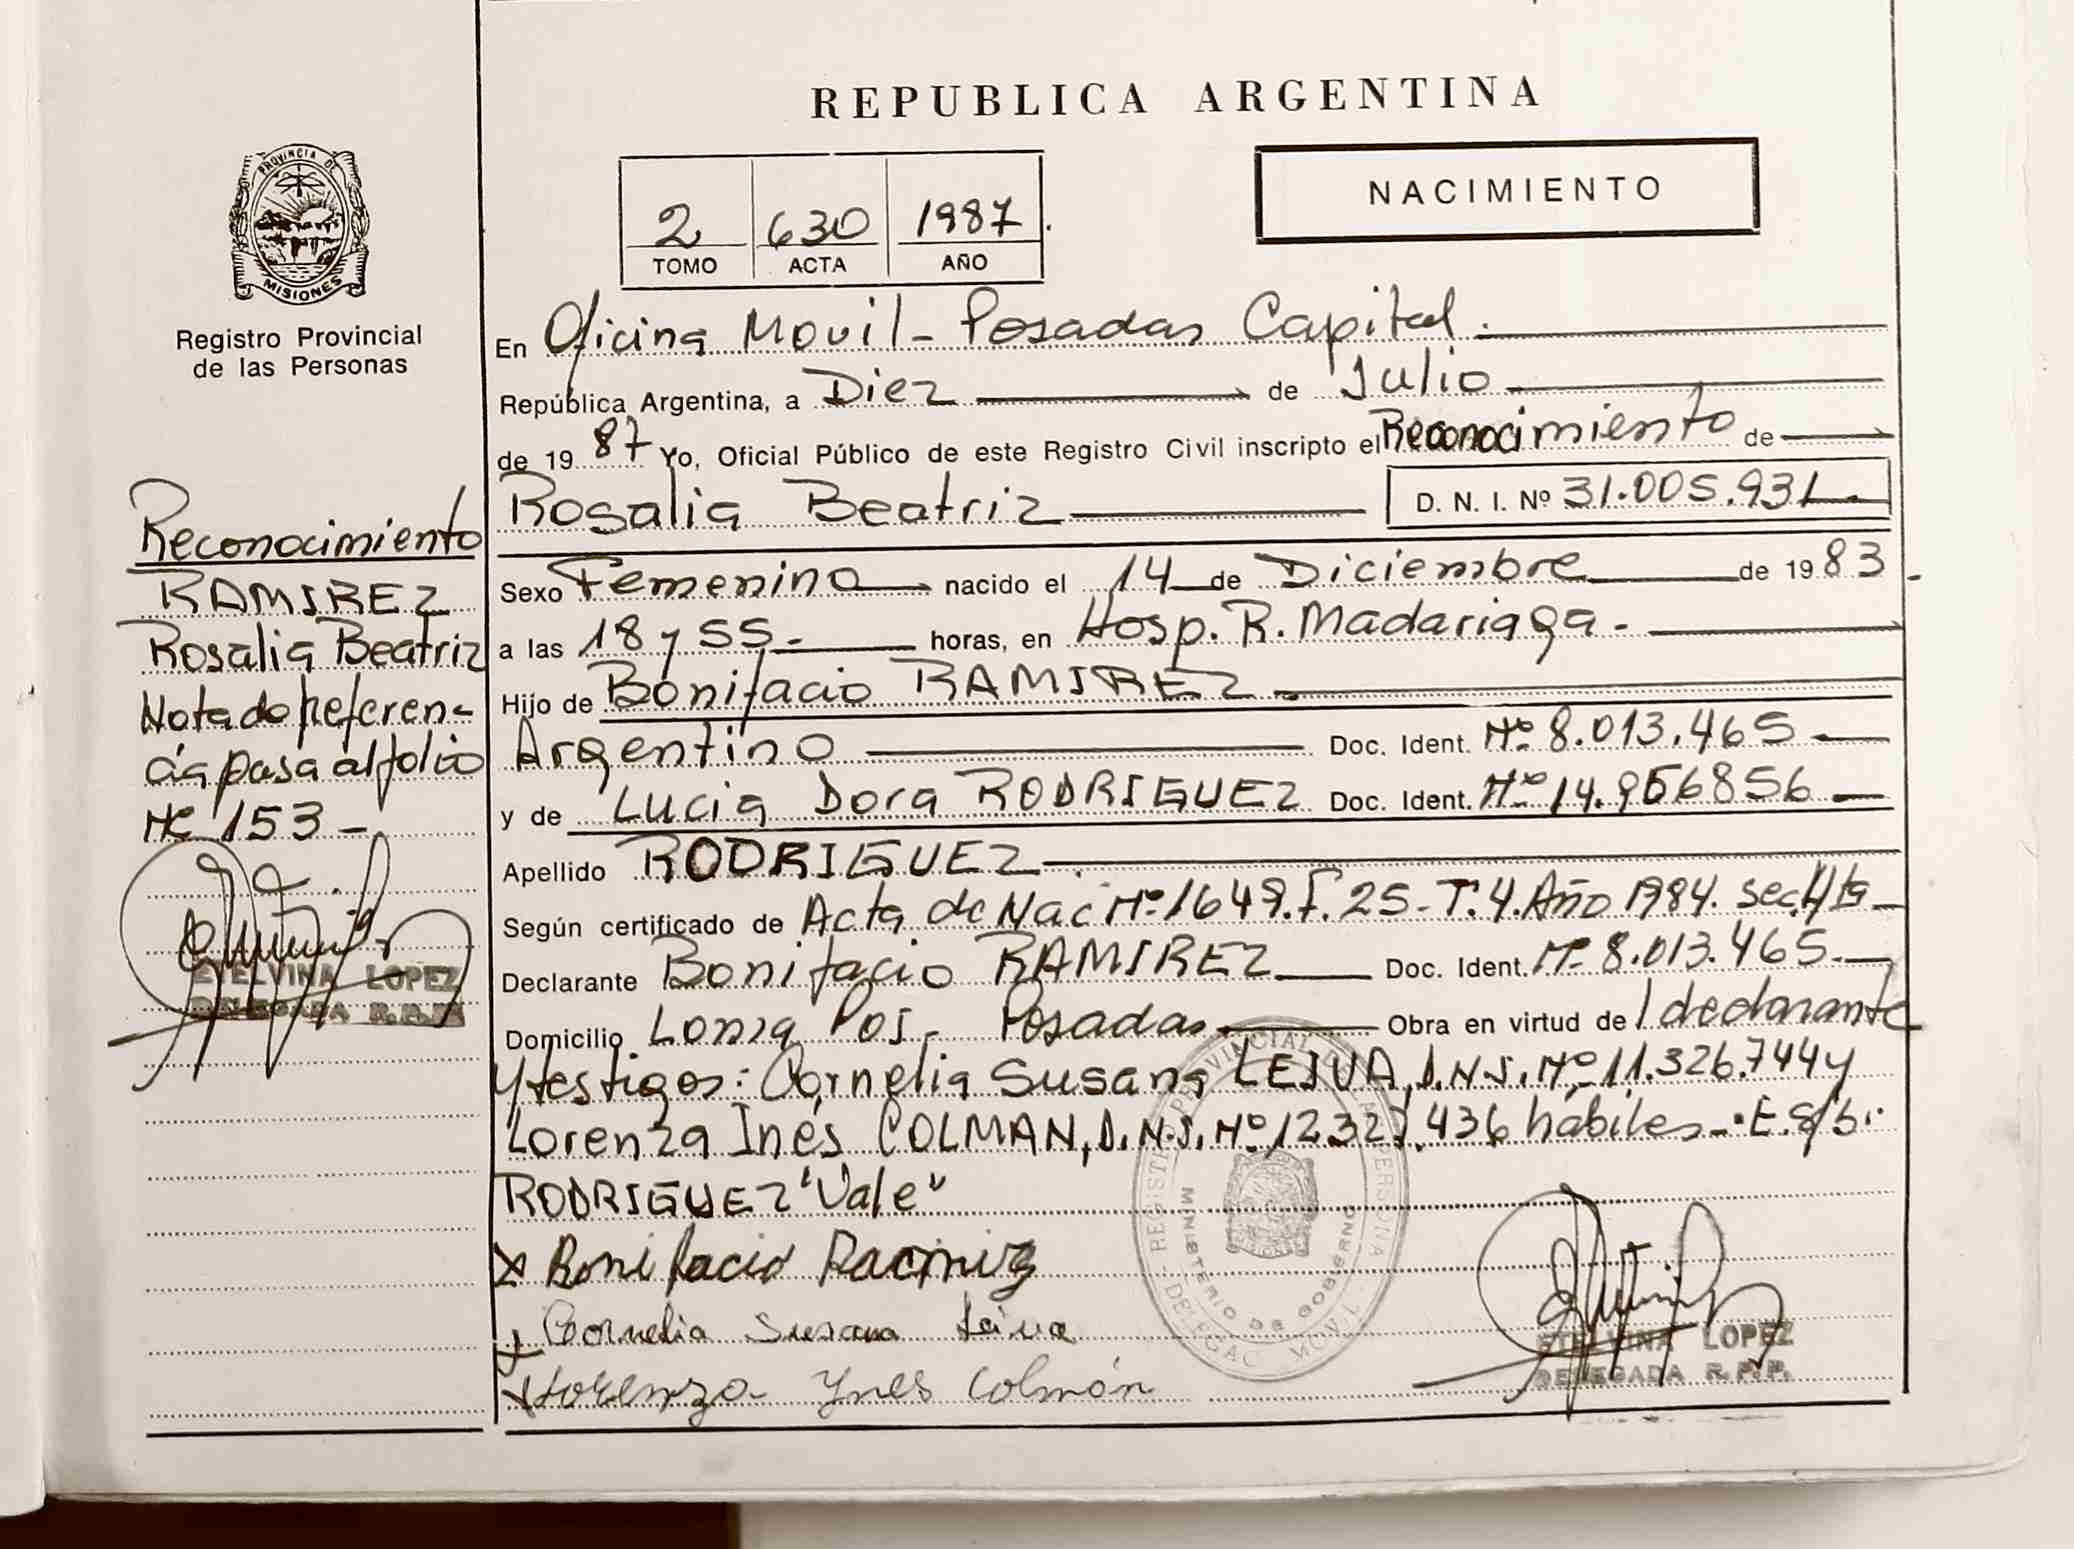 REPUBLICA ARGENTINA
NACIMIENTO
PROVINCIA DE
MISIONES
Registro Provincial
de las Personas
2 630 1987
TOMO ACTA AÑO
En Oficina Movil - Posadas Capital.
República Argentina, a Diez de Julio
de 19 87 Yo, Oficial Público de este Registro Civil inscripto el Reconocimiento de
Rosalia Beatriz D. N. I. Nº 31.005.931
Sexo Femenino nacido el 14 de Diciembre de 19 83
a las 18 y 55 horas, en Hosp. R. Madariaga.
Hijo de Bonifacio RAMIREZ
Argentino Doc. Ident. Nº 8.013.465
y de Lucia Dora RODRIGUEZ Doc. Ident. Nº 14.956856
Apellido RODRIGUEZ
Según certificado de Acta de Nac Nº 1649. F. 25 - T. 4. Año 1984. sec. 4ta
Declarante Bonifacio RAMIREZ Doc. Ident. Nº 8.013.465
Domicilio Lomza Pos - Posadas Obra en virtud de l declarante
y testigos: Cornelia Susana LEIVA, D.N.I. Nº 11.326.744 y
Lorenza Inés COLMAN, D.N.I. Nº 12.327.436 hábiles - E. s/b:
RODRIGUEZ "Vale"
x Bonifacio Ramirez
x Cornelia Susana Leiva
x Lorenza Ynes Colmán
Reconocimiento
RAMIREZ
Rosalia Beatriz
Nota de referen-
cia pasa al folio
Nº 153 -
ETELVINA LOPEZ
DELEGADA R.P.P.
MINISTERIO DE GOBIERNO
ETELVINA LOPEZ
DELEGADA R.P.P.